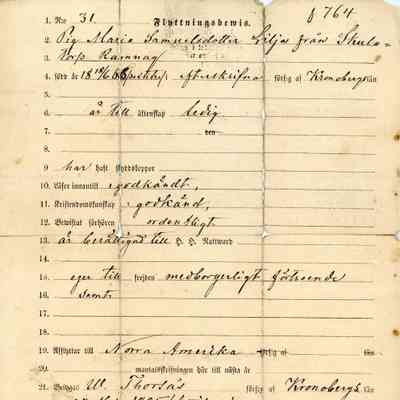 1. N:o 31. Flyttningsbewis. f 764
2. Pig Maria Samuelsdotter Lilja från Skuls=
3. Torp Ramnäs
4. född år 18 utskrifna förs:g af Kronobergs län
5.
6. är till äktenskap ledig
7. den
8.
9. har haft skyddskoppor
10. Läser innantill godkändt,
11. Kristendomskunskap godkänd,
12. Bewistat förhören ordentligt
13. är berättigad till H. H. Nattward
14.
15. eger till frejden medborgerligt förtroende
16. samt
17.
18.
19. Afflyttar till Norra Amerika förs:g af län
20. mantalsskrifningen här till nästa år
21. Betygar W. Thorsås förs:g af Kronobergs län